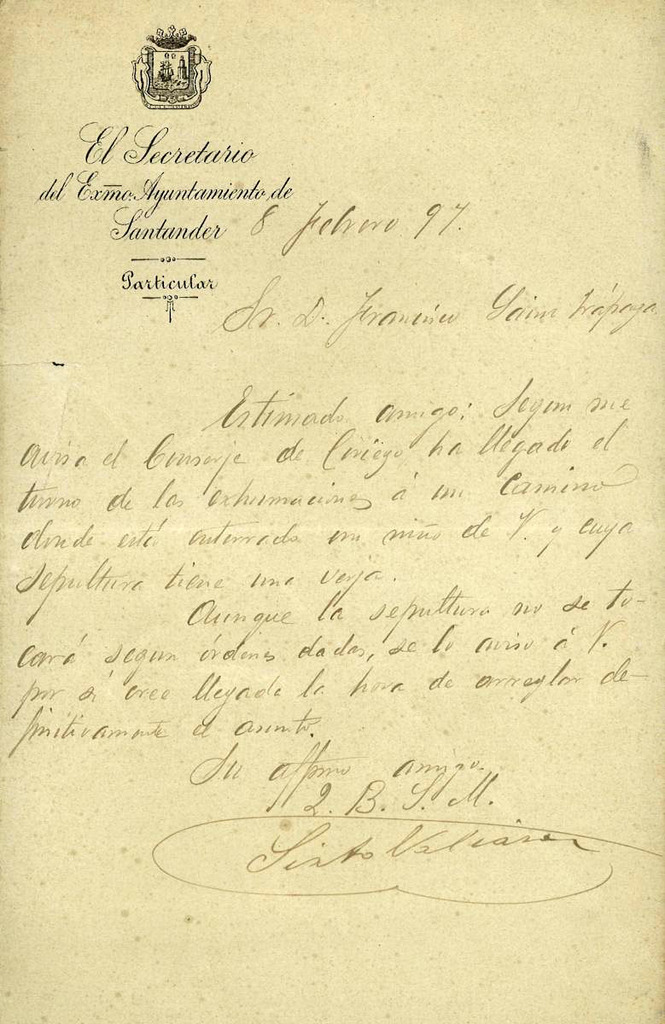 El Secretario
del Exmo. Ayuntamiento de
Santander
Particular
8 Febrero 97.
Sr. D. Francisco Sainz Trápaga
Estimado amigo: Segun me
avisa el Conserje de Ciriego ha llegado el
turno de las exhumaciones á un camino
donde está enterrado un niño de V. y cuya
sepultura tiene una verja.
Aunque la sepultura no se to-
cará segun órdenes dadas, se lo aviso á V.
por si cree llegada la hora de arreglar de-
finitivamente el asunto.
Su affmo amigo.
Q. B. S. M.
Sixto Valcázar